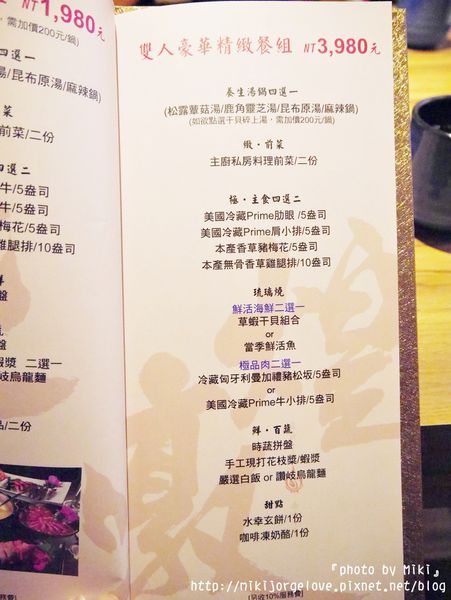 NT1,980元
需加價200元/鍋)
湯/昆布原湯/麻辣鍋)
前菜
前菜/二份
四選二
牛/5盎司
牛/5盎司
梅花/5盎司
雞腿排/10盎司
鮮
盤
蝦漿 二選一
讚岐烏龍麵
品/二份
服務費]
雙人豪華精緻餐組 NT3,980元
養生湯鍋四選一
(松露蕈菇湯/鹿角靈芝湯/昆布原湯/麻辣鍋)
(如欲點選干貝碎上湯，需加價200元/鍋)
緻・前菜
主廚私房料理前菜/二份
極・主食四選二
美國冷藏Prime肋眼 /5盎司
美國冷藏Prime肩小排/5盎司
本產香草豬梅花/5盎司
本產無骨香草雞腿排/10盎司
琉璃燒
鮮活海鮮二選一
草蝦干貝組合
or
當季鮮活魚
極品肉二選一
冷藏匈牙利曼加禮豬松坂/5盎司
or
美國冷藏Prime牛小排/5盎司
鮮・百蔬
時蔬拼盤
手工現打花枝漿/蝦漿
嚴選白飯 or 讚岐烏龍麵
甜點
水幸玄餅/1份
咖啡凍奶酪/1份
[另收10%服務費]
『photo by Miki』
http://mikijorgelove.pixnet.net/blog